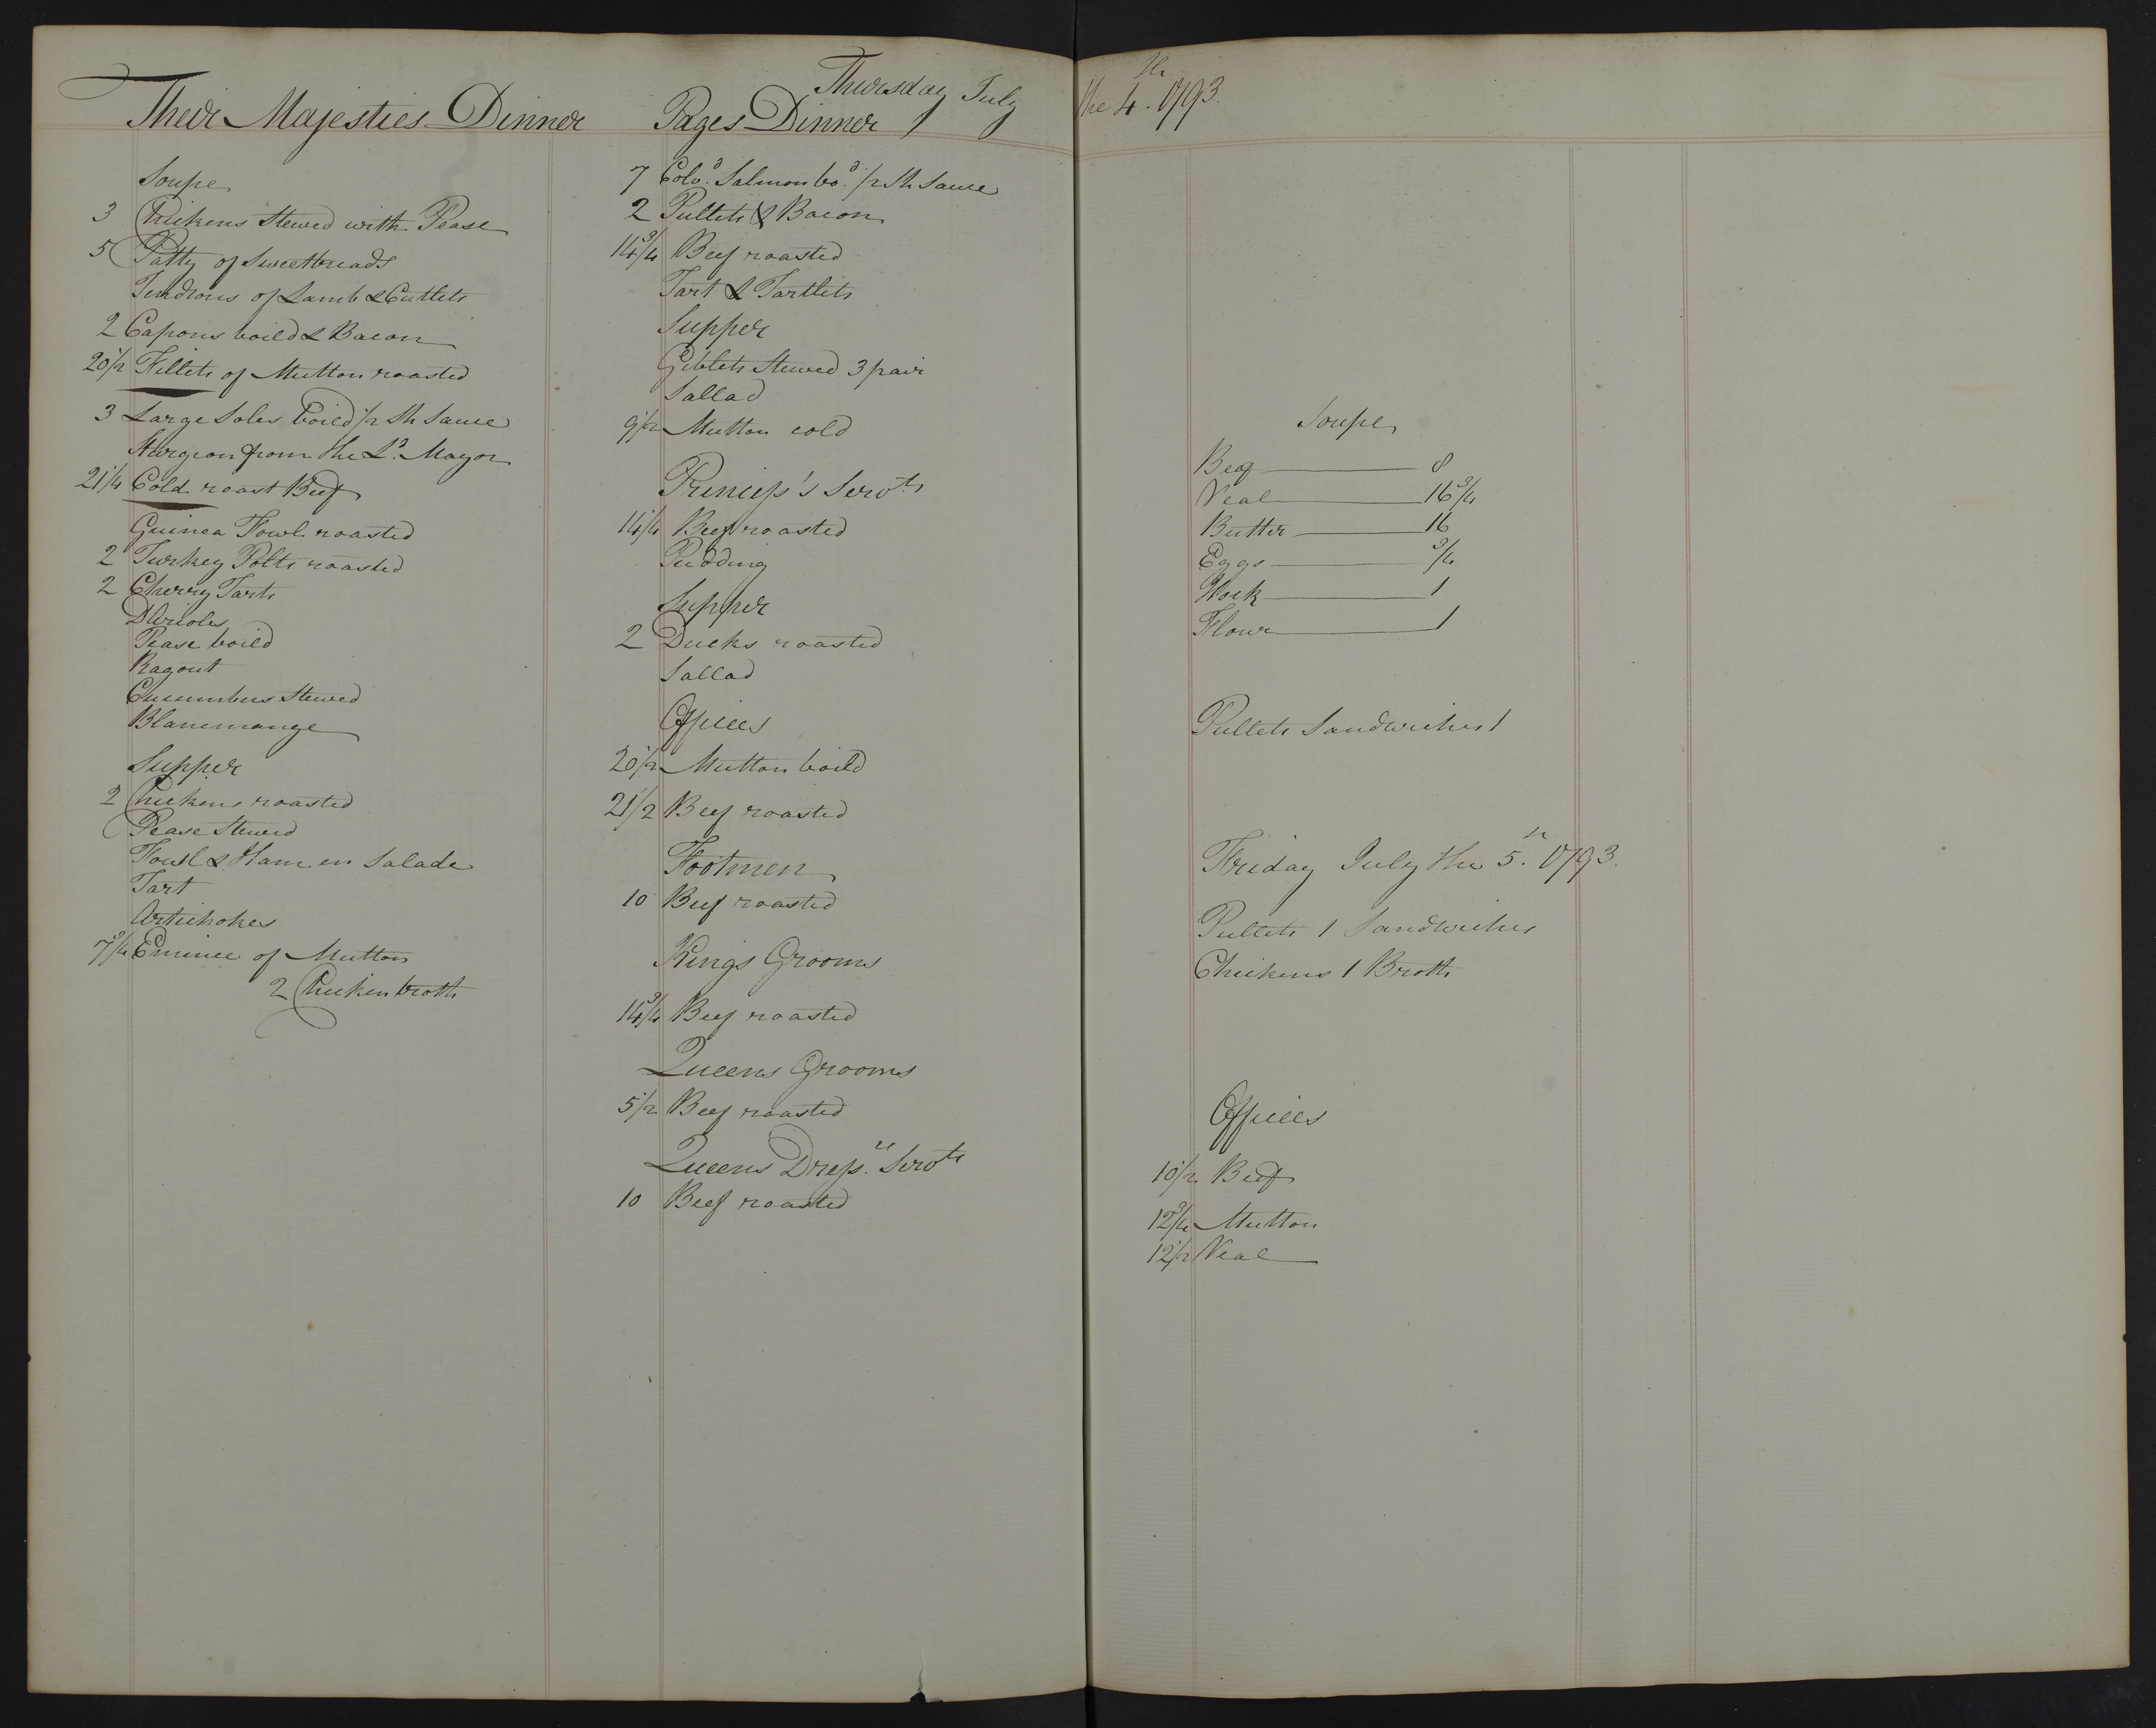 Thursday July the 4th. 1793.
Their Majesties Dinner
Soupe
3 Chickens Stewed with Pease
5 Patty of Sweetbreads
Tendrons of Lamb & Cutlets
2 Capons boild & Bacon
20 1/2 Fillets of Mutton roasted
3 Large Soles boild 1/2 Sh Sauce
Sturgeon from the Ld. Mayor
21 1/4 Cold roast Beef
Guinea Fowl roasted
2 Turkey Polts roasted
2 Cherry Tarts
Darioles
Pease boild
Ragout
Cucumbers Stewed
Blancmange
Supper
2 Chickens roasted
Pease Stewed
Fowl & Ham en Salade
Tart
Artichokes
7 3/4 Emince of Mutton
2 Chicken broth
Pages Dinner
7 Salmon bod. 1/2 Sh Sauce
2 Pullets & Bacon
14 3/4 Beef roasted
Tart & Tartlets
Supper
Giblets Stewed 3 pair
Sallad
9 1/2 Mutton cold
Princip's Servts
14 1/4 Beef roasted
Pudding
Supper
2 Ducks roasted
Sallad
Offices
20 1/2 Mutton boild
21 1/2 Beef roasted
Footmen
10 Beef roasted
Kings Grooms
14 3/4 Beef roasted
Queens Grooms
5 1/2 Beef roasted
Queens Dress.rs Servts
10 Beef roasted
Soupe
Beef 8
Veal 16 3/4
Butter 16
Eggs 3/4
Hock 1
Flour 1
Pullets Sandwiches 1
Friday July the 5th. 1793.
Pullets 1 Sandwiches
Chickens 1 Broth
Offices
10 1/2 Beef
12 3/4 Mutton
12 1/2 Veal